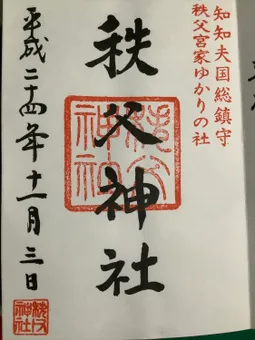 知知夫国総鎮守
秩父宮家ゆかりの社
秩父神社
秩父
神社
平成二十四年十一月三日
秩父
神社